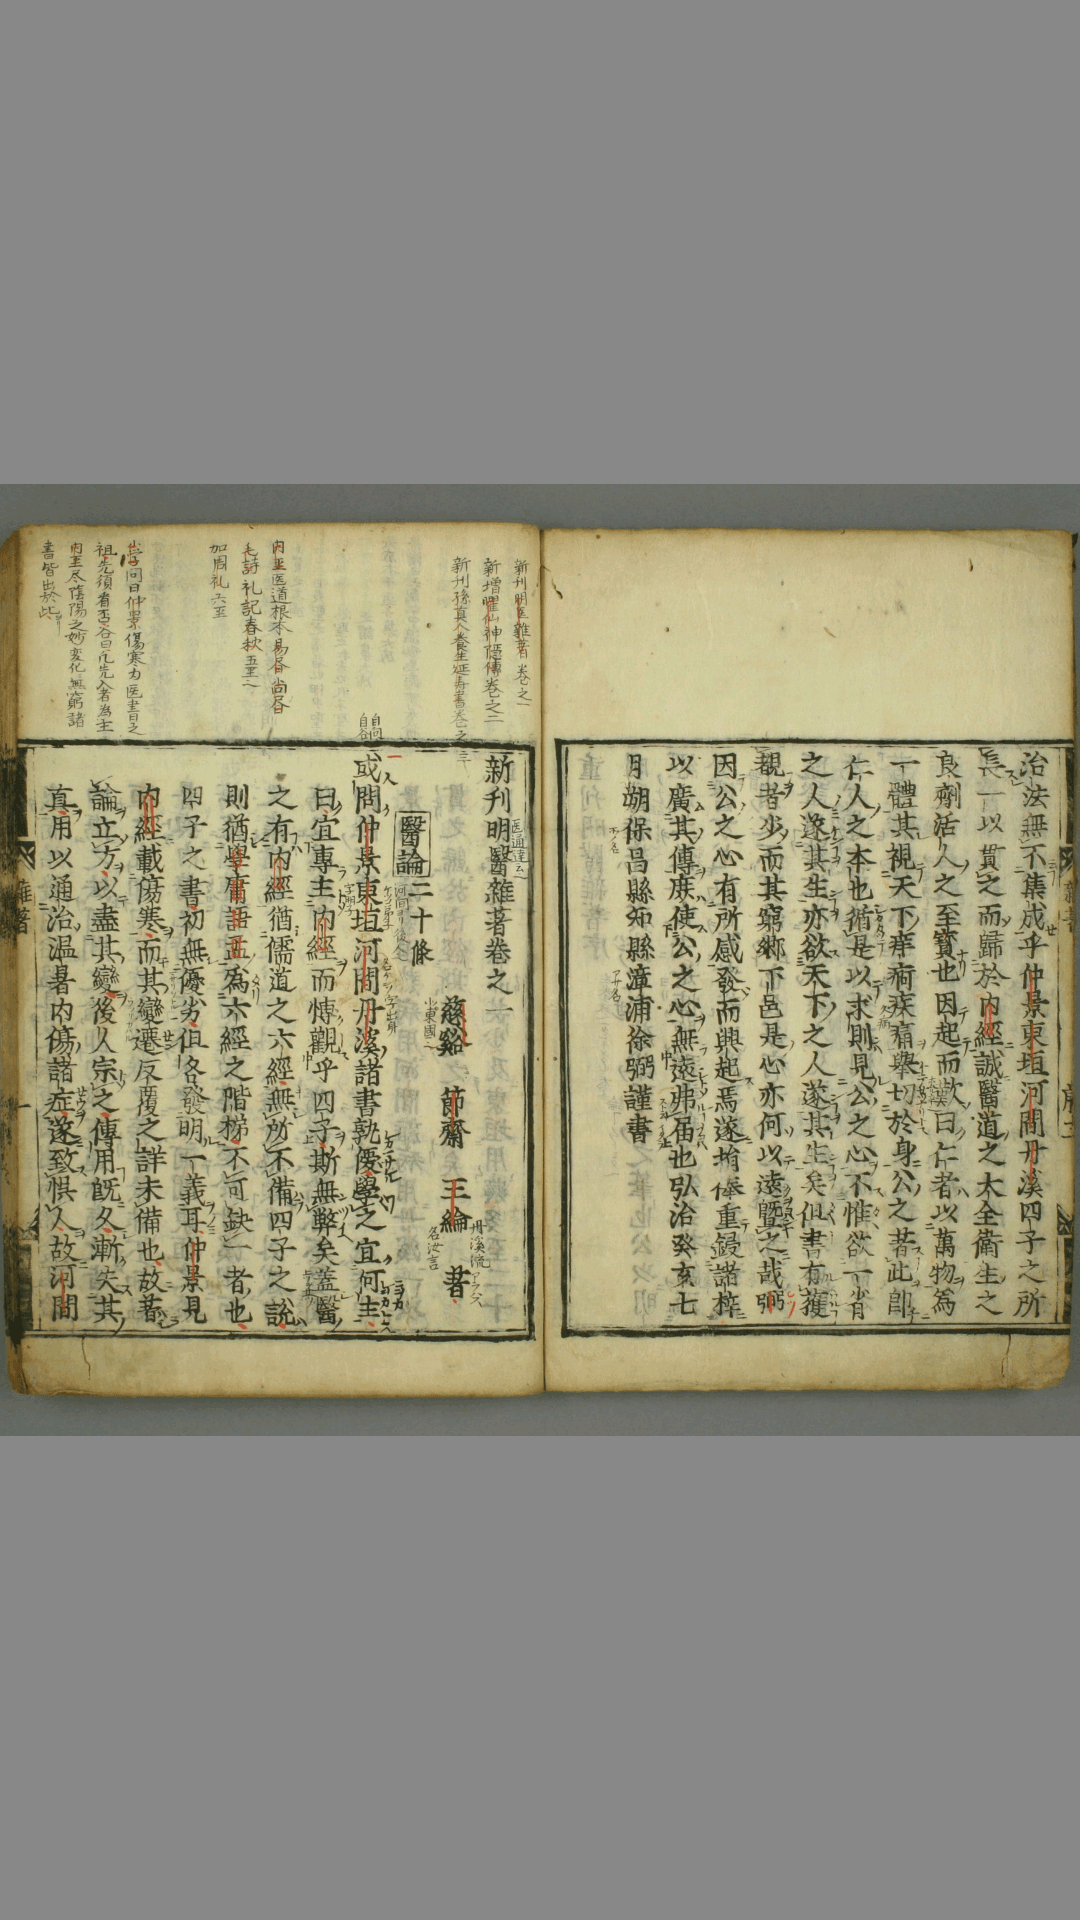 治法無不集成乎仲景東垣河間丹溪四子之所
長一以貫之而歸於内經誠醫道之大全衛生之
良劑活人之至寳也因起而歎曰仁者以萬物為
一體其視天下痒疴疾痛舉切於身公之著此卽
仁人之本也循是以求則見公之心不惟欲一省
之人遂其生亦欲天下之人遂其生矣但書有獲
覩者少而其窮鄉下邑是心亦何以遠曁之哉弼
因公之心有所感發而興起焉遂捐俸重鋟諸梓
以廣其傳庻使公之心無遠弗届也弘治癸亥七
月朔保昌縣知縣漳浦徐弼謹書
新刊明医雜著 卷之一
新増臞仙神隠傳卷之二
新刊孫真人養生延寿書卷之三
新刊明醫雜著卷之一
慈谿 節齋 王綸 著
醫論二十條
或問仲景東垣河間丹溪諸書孰優學之宜何主
曰宜專主内經而慱觀乎四子斯無弊矣蓋醫
之有内經猶儒道之六經無所不備四子之說
則猶學庸語孟為六經之階梯不可缺一者也
四子之書初無優劣但各發明一義耳仲景見
内經載傷寒而其變遷反覆之詳未備也故著
論立方以盡其變後人宗之傳用旣久漸失其
真用以通治温暑内傷諸症遂致悞人故河間
内至医道根本易昏尚昏
毛詩礼記春秋五至之
加周礼六至
祖先須看否答曰凡先入者為主
内至尽陰陽之妙変化無窮諸
書皆出於此
雜著